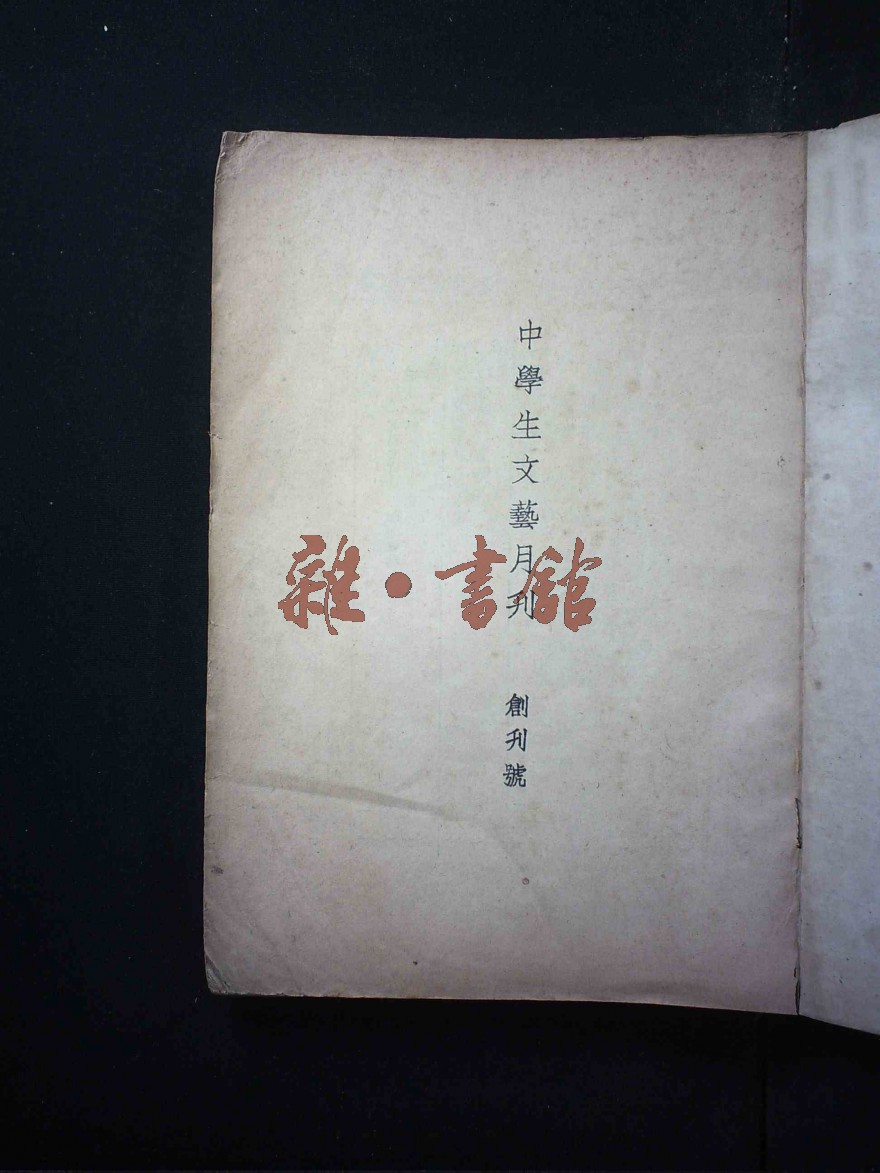 中學生文藝月刊
創刊號
雜·書館